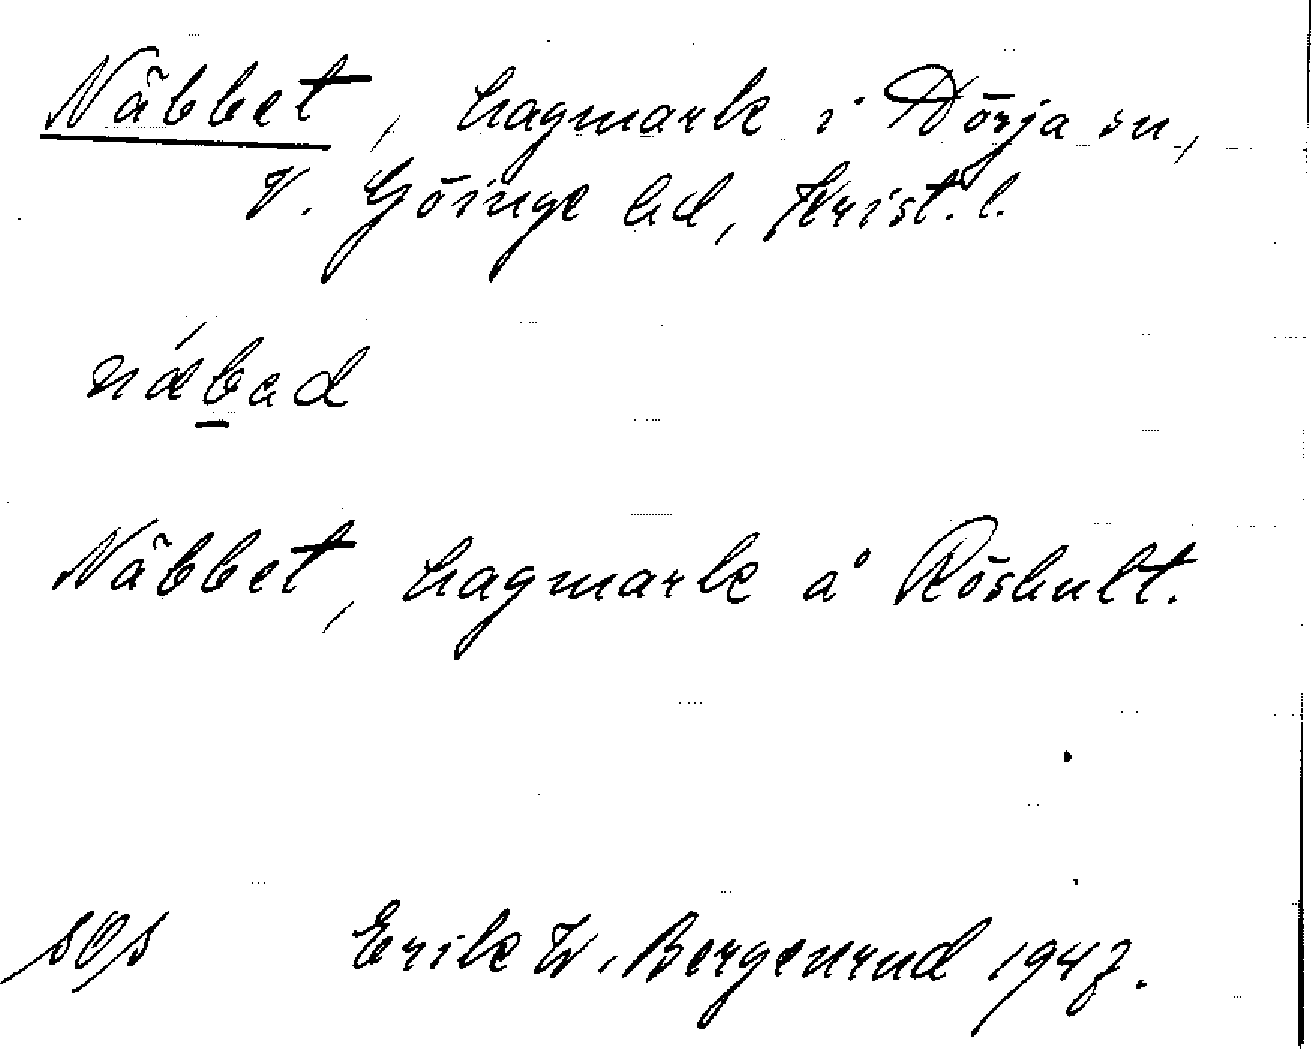 Näbbet, hagmark i Dörja sn,
V. Göinge hd, Krist. l.
næ´bad
Näbbet, hagmark å Röshult.
sOs Erik W. Bergenrud 1947.